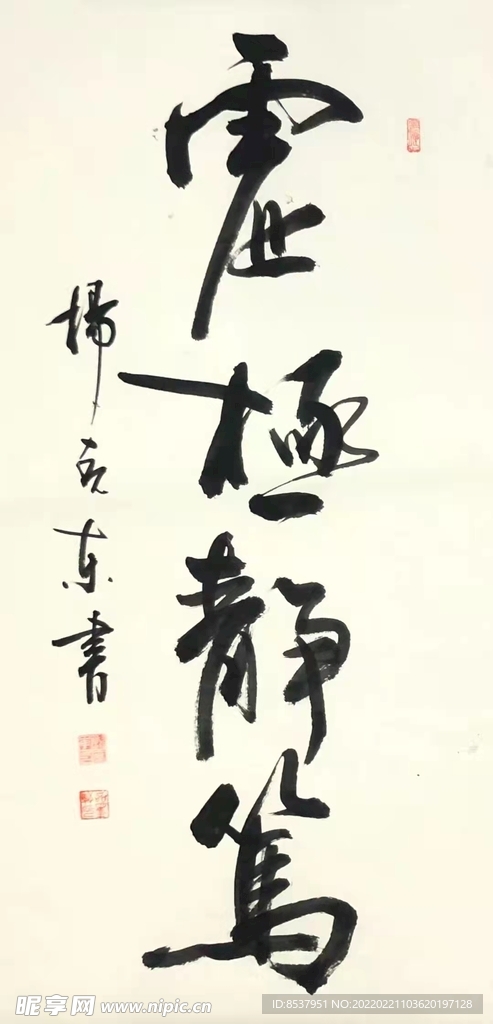 虛極靜篤
楊克東書
昵享网 www.nipic.cn
ID:8537951 NO:20220221103620197128